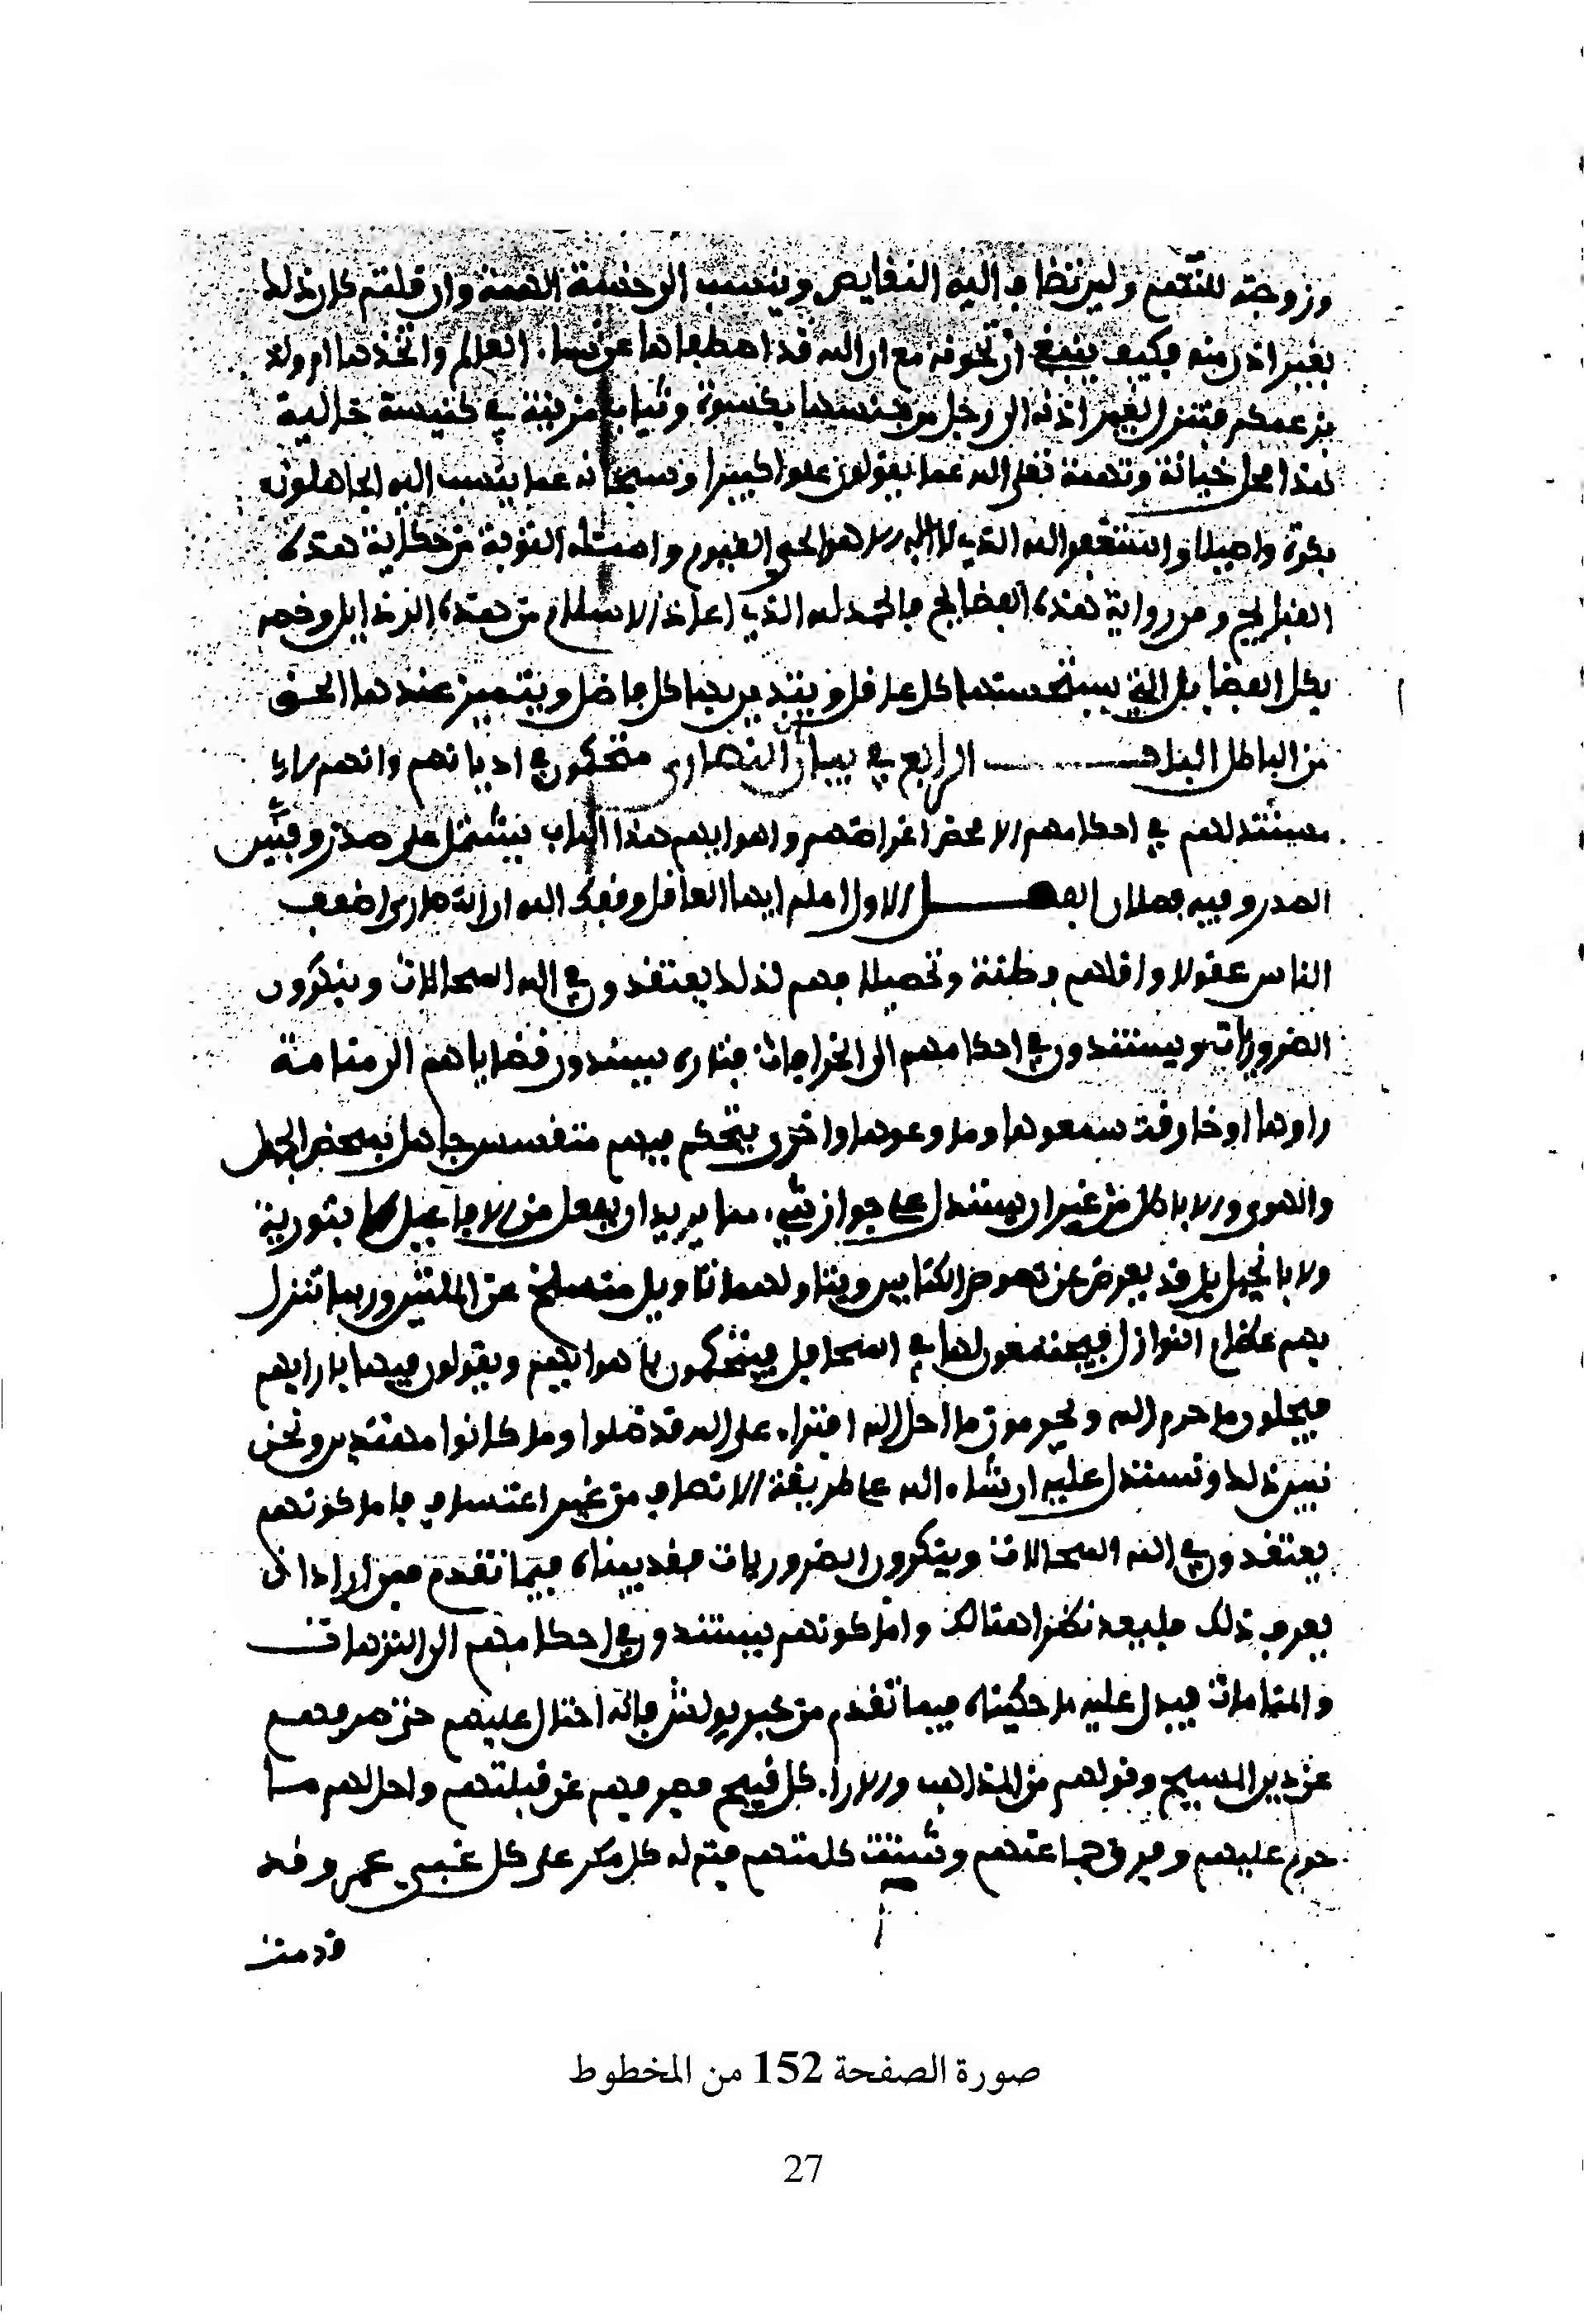 وزوجته للتهم ولين تضاف اليه النقايص وينسب الى خسة الهمة وان قلتم كان ذلك
بغير اذن منه فكيف ينبغي ان تخونه مع ان الله قد اصطفاها على نساء العالم واتخذها ام ولد
بزعمكم فتنزل بغير اذنه الى رجل من جنسها بكسوة وثياب مزينة في كنيسة خالية
هذا محل خيانة وتهمة تعلى الله عما يقولون علوا كبيرا وسبحانه عما ينسب اليه الجاهلون
بكرة واصيلا واستغفر الله الذي لا اله الا هو الحي القيوم واسئله التوبة من حكاية هذه
القبايح ومن رواية هذه الفضايح فالحمد لله الذي اعاذ الاسلام من هذه الرذايل وخصه
بكل الفضايل التي يستحسنها كل عاقل ويتدين بها كل فاضل ويتميز عندها الحق
من الباطل الباب الرابع في بيان ان النصارى متحكمون في اديانهم وانهم لا
مستند لهم في احكامهم الا محض اغراضهم واهوايهم هذا الباب يشتمل على صدر وفنين
الصدر وفيه فصلان الفصل الاول اعلم ايها العاقل وفقك الله ان النصارى اضعف
الناس عقولا واقلهم فطنة وتحصيلا فهم لذلك يعتقدون في الله المحالات وينكرون
الضروريات ويستندون في احكامهم الى الخرافات فتارة يسندون قضاياهم الى منامة
راوها او خارقة سمعوها وما وعوها واخرى يتحكم فيهم متفسس جاهل بمحض الجهل
والهوى والاباطل من غير ان يستدل على جواز شيء مما يريد ان يفعل من الافاعيل لا بتورية
ولا بانجيل بل قد يعرض عن نصوص الكتابين ويتاولهما تاويل منسلخ عن الملتين وربما تنزل
بهم عظام النوازل فيجتمعون لها في المحافل فيتحكمون باهوايهم ويقولون فيها بارايهم
فيحلون ما حرم الله ويحرمون ما احل الله افتراء على الله قد ضلوا وما كانوا مهتدين ونحن
نبين ذلك ونستدل عليه ان شاء الله على طريقة الانصاف من غير اعتساف فاما كونهم
يعتقدون في الله المحالات وينكرون الضروريات فقد بيناه فيما تقدم فمن اراد ان
يعرف ذلك فليعد نظرا هنالك واما كونهم يستندون في احكامهم الى النزهات
والمنامات فيدل عليه ما حكيناه فيما تقدم من خبر بولش فانه احتال عليهم حتى صرفهم
عن دين المسيح وقولهم من المذاهب والارا كل قبيح فصرفهم عن قبلتهم واحل لهم ما
حرم عليهم وفرق جماعتهم وشتت كلمتهم فتم له كل مكر على كل غبي غمر وقد
قدمت
صورة الصفحة 152 من المخطوط
27